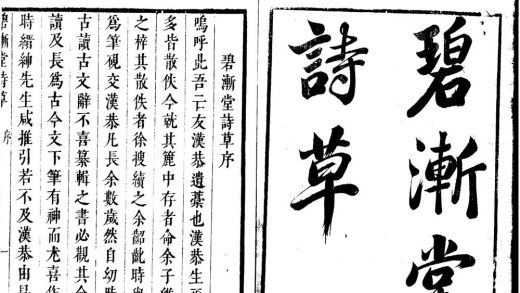 碧漸堂
詩草
碧漸堂詩草序
嗚呼此吾亡友漢恭遺藁也漢恭生
多皆散佚今就其簏中存者命余子
之梓其散佚者徐搜續之余齠齔時與
爲筆硯交漢恭凡長余數歲然自幼時
古讀古文辭不喜纂輯之書必觀其全
讀及長爲古今文下筆有神而尤喜作
時縉紳先生咸推引若不及漢恭由是
碧漸堂詩草 序 一